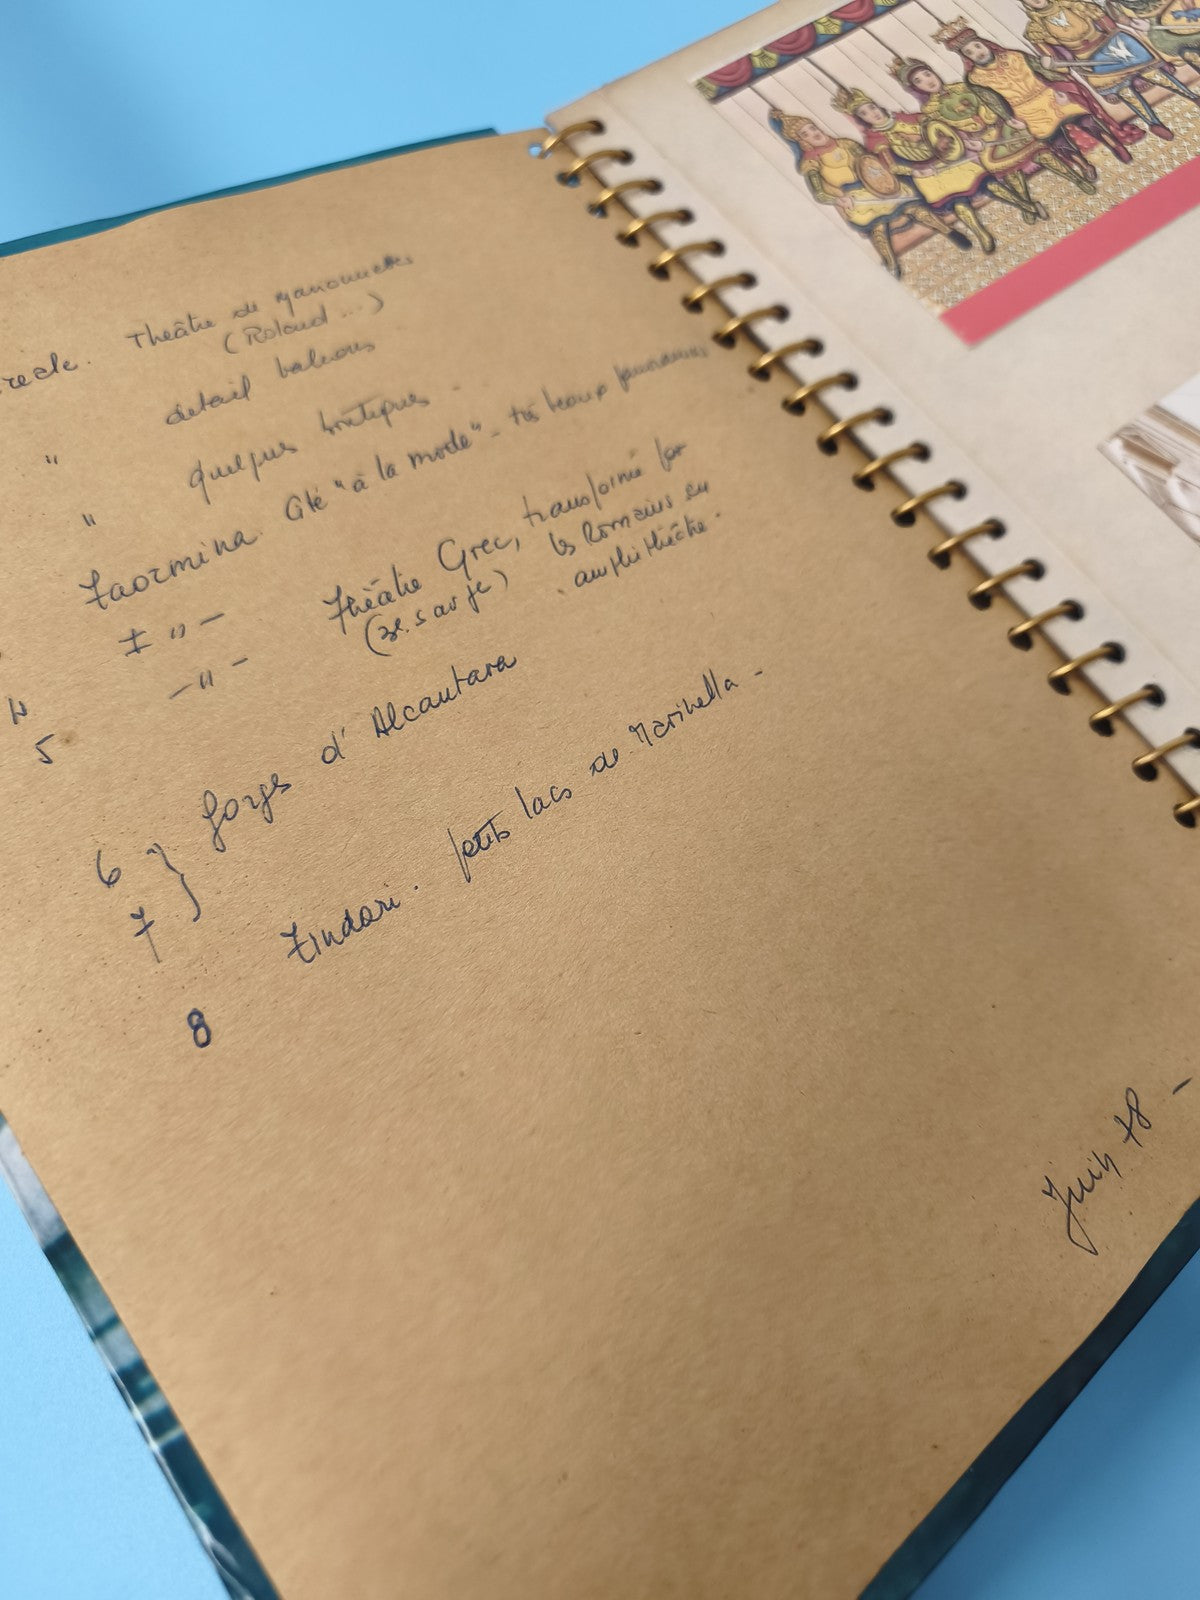 Théâtre de Marionnettes
(Roland ...)
détail balcons
" quelques boutiques -
" Taormina. Cité "à la mode" - très beaux panoramas
I " - Théâtre Grec, transformé par
4 - " - les Romains en
5 amphithéâtre.
6 } Gorges d'Alcantara
7
8 Tindari. petits lacs de Marinella -
Juin 78 -